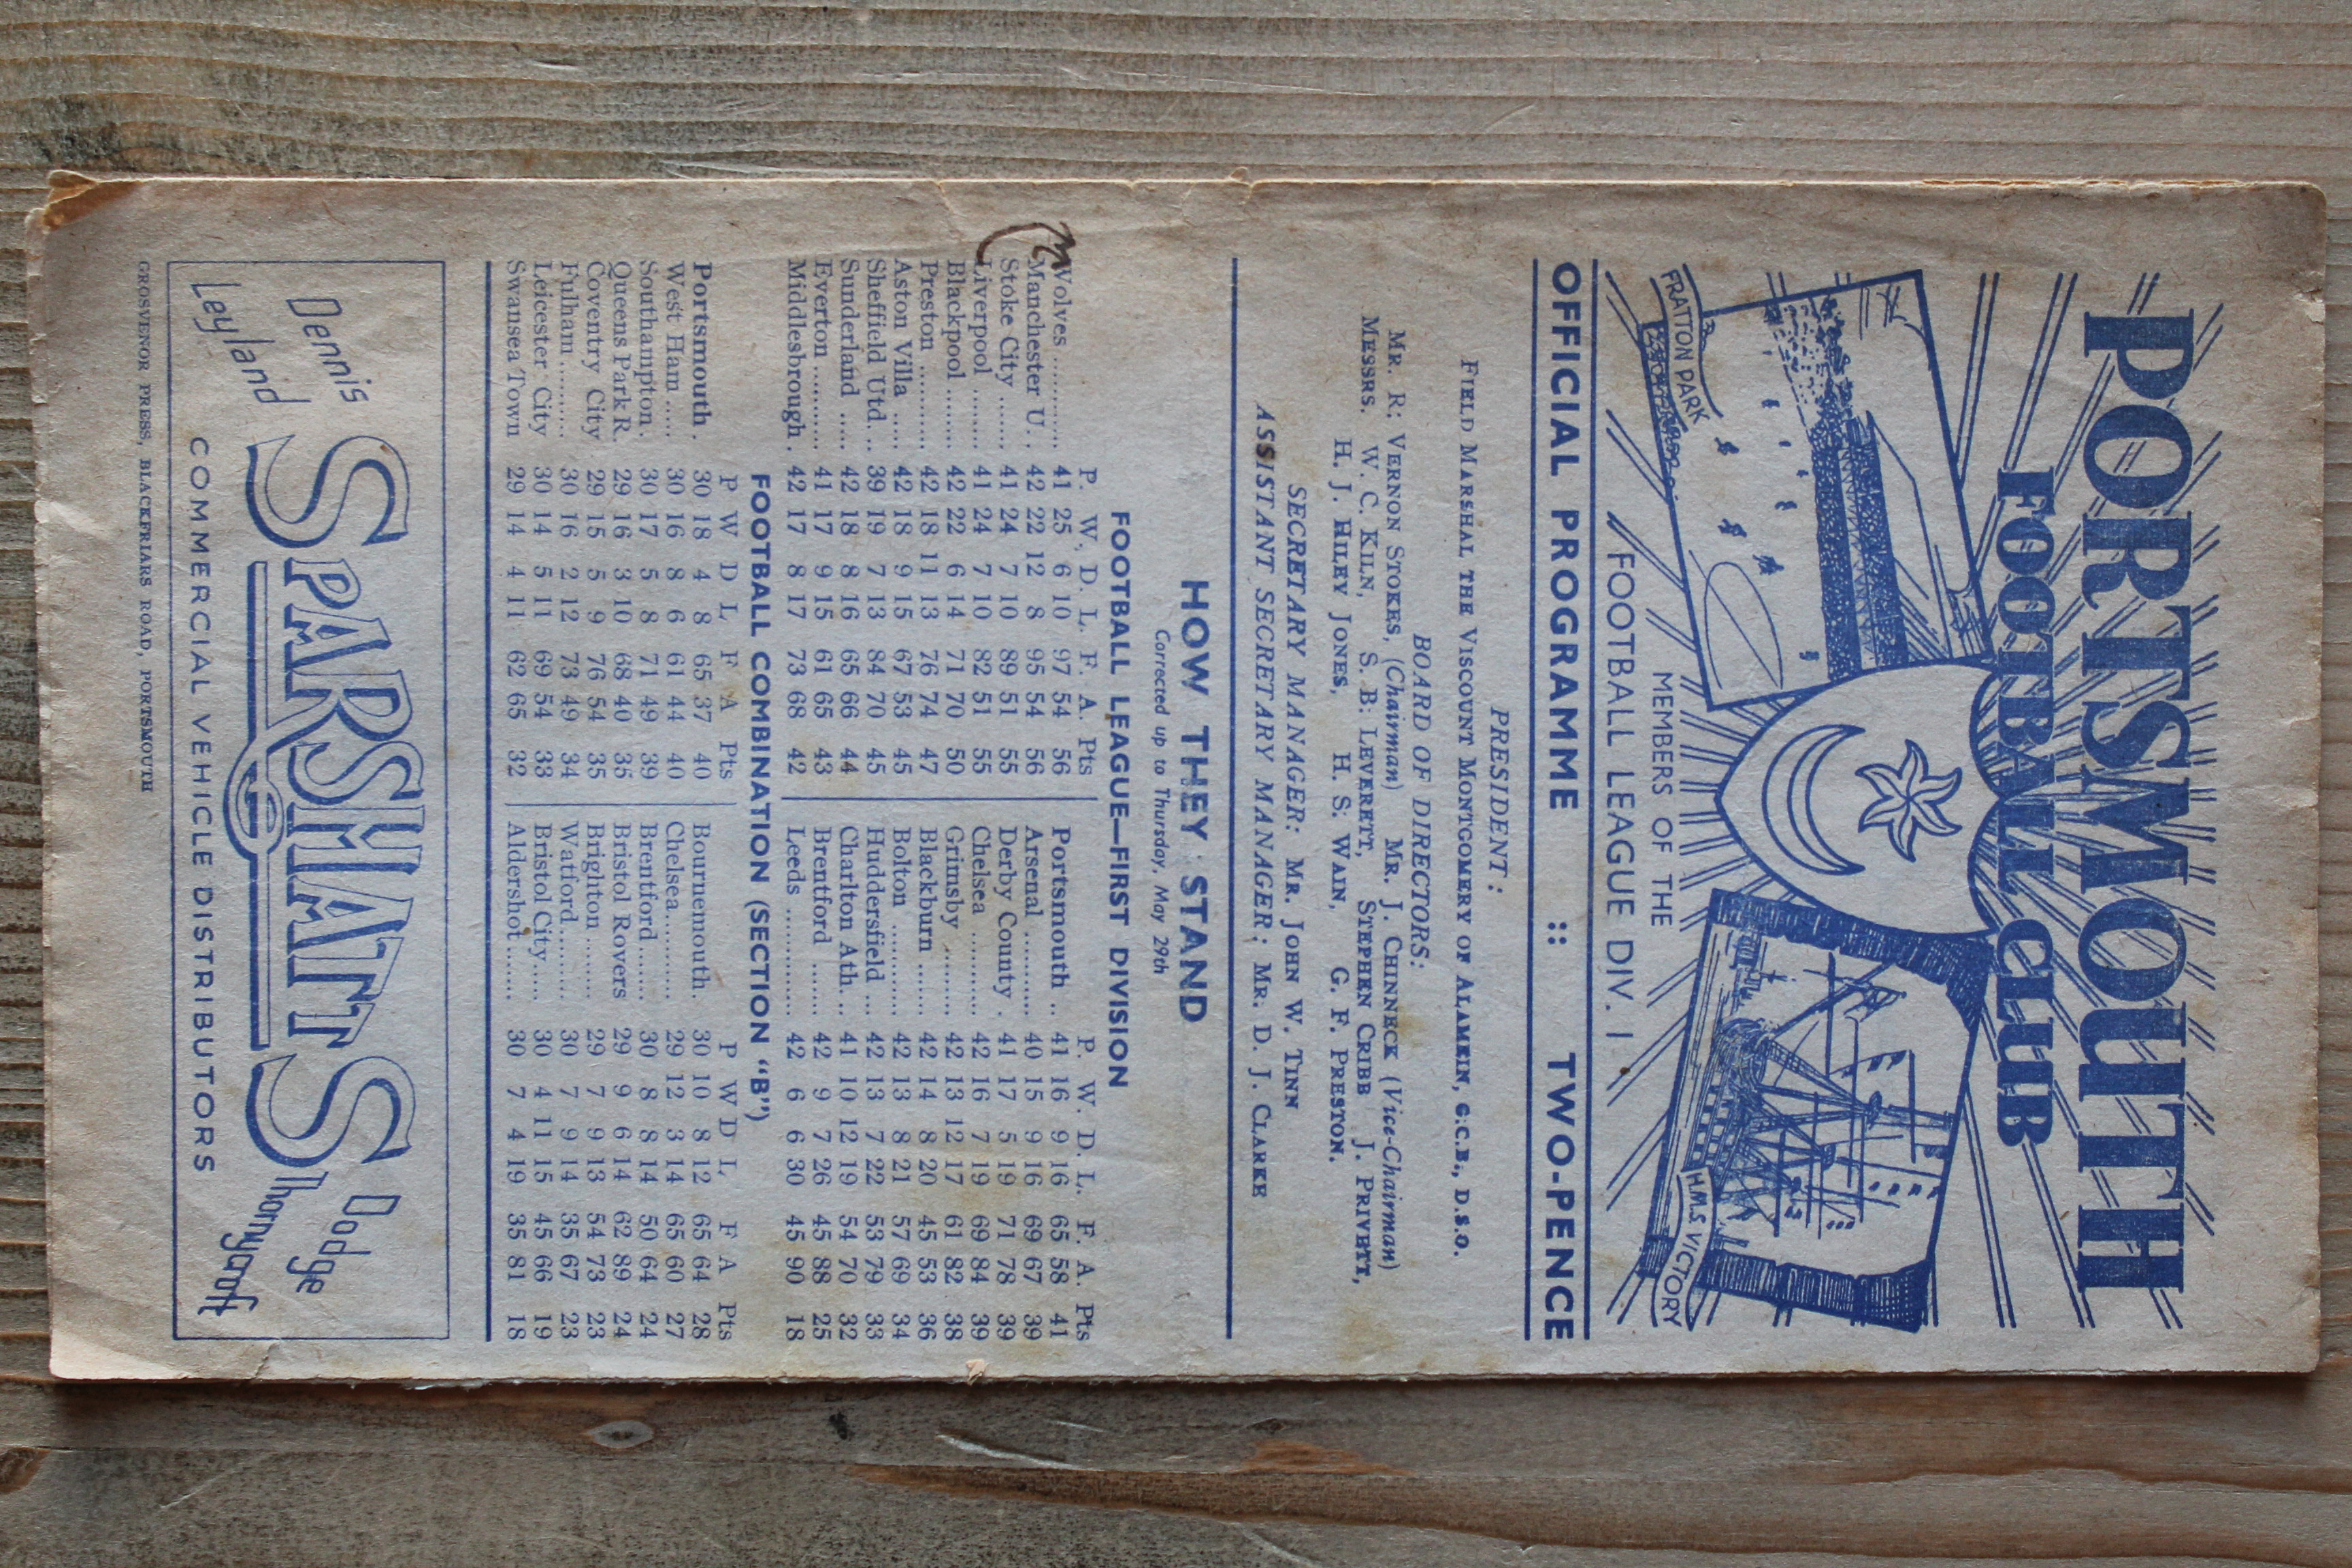 PORTSMOUTH
FOOTBALL CLUB
FRATTON PARK
H.M.S. VICTORY
MEMBERS OF THE
FOOTBALL LEAGUE DIV. 1
OFFICIAL PROGRAMME :: TWO-PENCE
PRESIDENT:
FIELD MARSHAL THE VISCOUNT MONTGOMERY OF ALAMEIN, G.C.B., D.S.O.
BOARD OF DIRECTORS:
MR. R. VERNON STOKES, (Chairman) MR. J. CHINNECK (Vice-Chairman)
MESSRS. W. C. KILN, S. B. LEVERETT, STEPHEN CRIBB J. PRIVETT,
H. J. HILEY JONES, H. S. WAIN, G. F. PRESTON.
SECRETARY MANAGER: MR. JOHN W. TINN
ASSISTANT SECRETARY MANAGER: MR. D. J. CLARKE
HOW THEY STAND
Corrected up to Thursday, May 29th
FOOTBALL LEAGUE—FIRST DIVISION
P. W. D. L. F. A. Pts P. W. D. L. F. A. Pts
Wolves ........... 41 25 6 10 97 54 56 Portsmouth .. 41 16 9 16 65 58 41
Manchester U. . 42 22 12 8 95 54 56 Arsenal .......... 40 15 9 16 69 67 39
Stoke City ....... 41 24 7 10 89 51 55 Derby County . 41 17 5 19 71 78 39
Liverpool ......... 41 24 7 10 82 51 55 Chelsea ........... 42 16 7 19 69 84 39
Blackpool ......... 42 22 6 14 71 70 50 Grimsby .......... 42 13 12 17 61 82 38
Preston ........... 42 18 11 13 76 74 47 Blackburn ....... 42 14 8 20 45 53 36
Aston Villa ..... 42 18 9 15 67 53 45 Bolton ............ 42 13 8 21 57 69 34
Sheffield Utd. .. 39 19 7 13 84 70 45 Huddersfield ... 42 13 7 22 53 79 33
Sunderland ..... 42 18 8 16 65 66 44 Charlton Ath. .. 41 10 12 19 54 70 32
Everton .......... 41 17 9 15 61 65 43 Brentford ....... 42 9 7 26 45 88 25
Middlesbrough . 42 17 8 17 73 68 42 Leeds ............. 42 6 6 30 45 90 18
FOOTBALL COMBINATION (SECTION "B")
P W D L F A Pts P W D L F A Pts
Portsmouth . 30 18 4 8 65 37 40 Bournemouth. 30 10 8 12 65 64 28
West Ham ..... 30 16 8 6 61 44 40 Chelsea........... 29 12 3 14 65 60 27
Southampton. 30 17 5 8 71 49 39 Brentford....... 30 8 8 14 50 64 24
Queens Park R. 29 16 3 10 68 40 35 Bristol Rovers 29 9 6 14 62 89 24
Coventry City 29 15 5 9 76 54 35 Brighton ........ 29 7 9 13 54 73 23
Fulham .......... 30 16 2 12 73 49 34 Watford.......... 30 7 9 14 35 67 23
Leicester City 30 14 5 11 69 54 33 Bristol City..... 30 4 11 15 45 66 19
Swansea Town 29 14 4 11 62 65 32 Aldershot........ 30 7 4 19 35 81 18
Dennis
Leyland
SPARSHATTS
Dodge
Thornycroft
COMMERCIAL VEHICLE DISTRIBUTORS
GROSVENOR PRESS, BLACKFRIARS ROAD, PORTSMOUTH